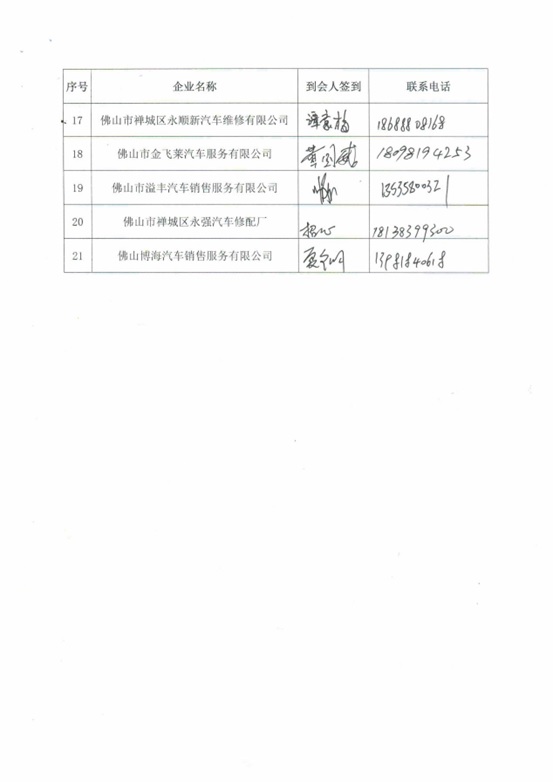 序号 企业名称 到会人签到 联系电话
17 佛山市禅城区永顺新汽车维修有限公司 18688808168
18 佛山市金飞莱汽车服务有限公司 18098194253
19 佛山市溢丰汽车销售服务有限公司
20 佛山市禅城区永强汽车修配厂 18138399300
21 佛山博海汽车销售服务有限公司